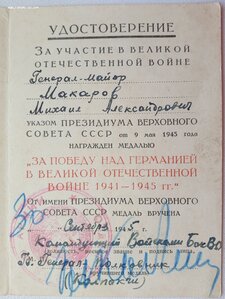 УДОСТОВЕРЕНИЕ
ЗА УЧАСТИЕ В ВЕЛИКОЙ
ОТЕЧЕСТВЕННОЙ ВОЙНЕ
Генерал-майор
Макаров
Михаил Александрович
УКАЗОМ ПРЕЗИДИУМА ВЕРХОВНОГО
СОВЕТА СССР от 9 мая 1945 года
НАГРАЖДЕН МЕДАЛЬЮ
„ЗА ПОБЕДУ НАД ГЕРМАНИЕЙ
В ВЕЛИКОЙ ОТЕЧЕСТВЕННОЙ
ВОЙНЕ 1941—1945 гг."
ОТ ИМЕНИ ПРЕЗИДИУМА ВЕРХОВНОГО
СОВЕТА СССР МЕДАЛЬ ВРУЧЕНА
Сентября 1945 г.
Командующий Войсками БакВО
Генерал Полковник